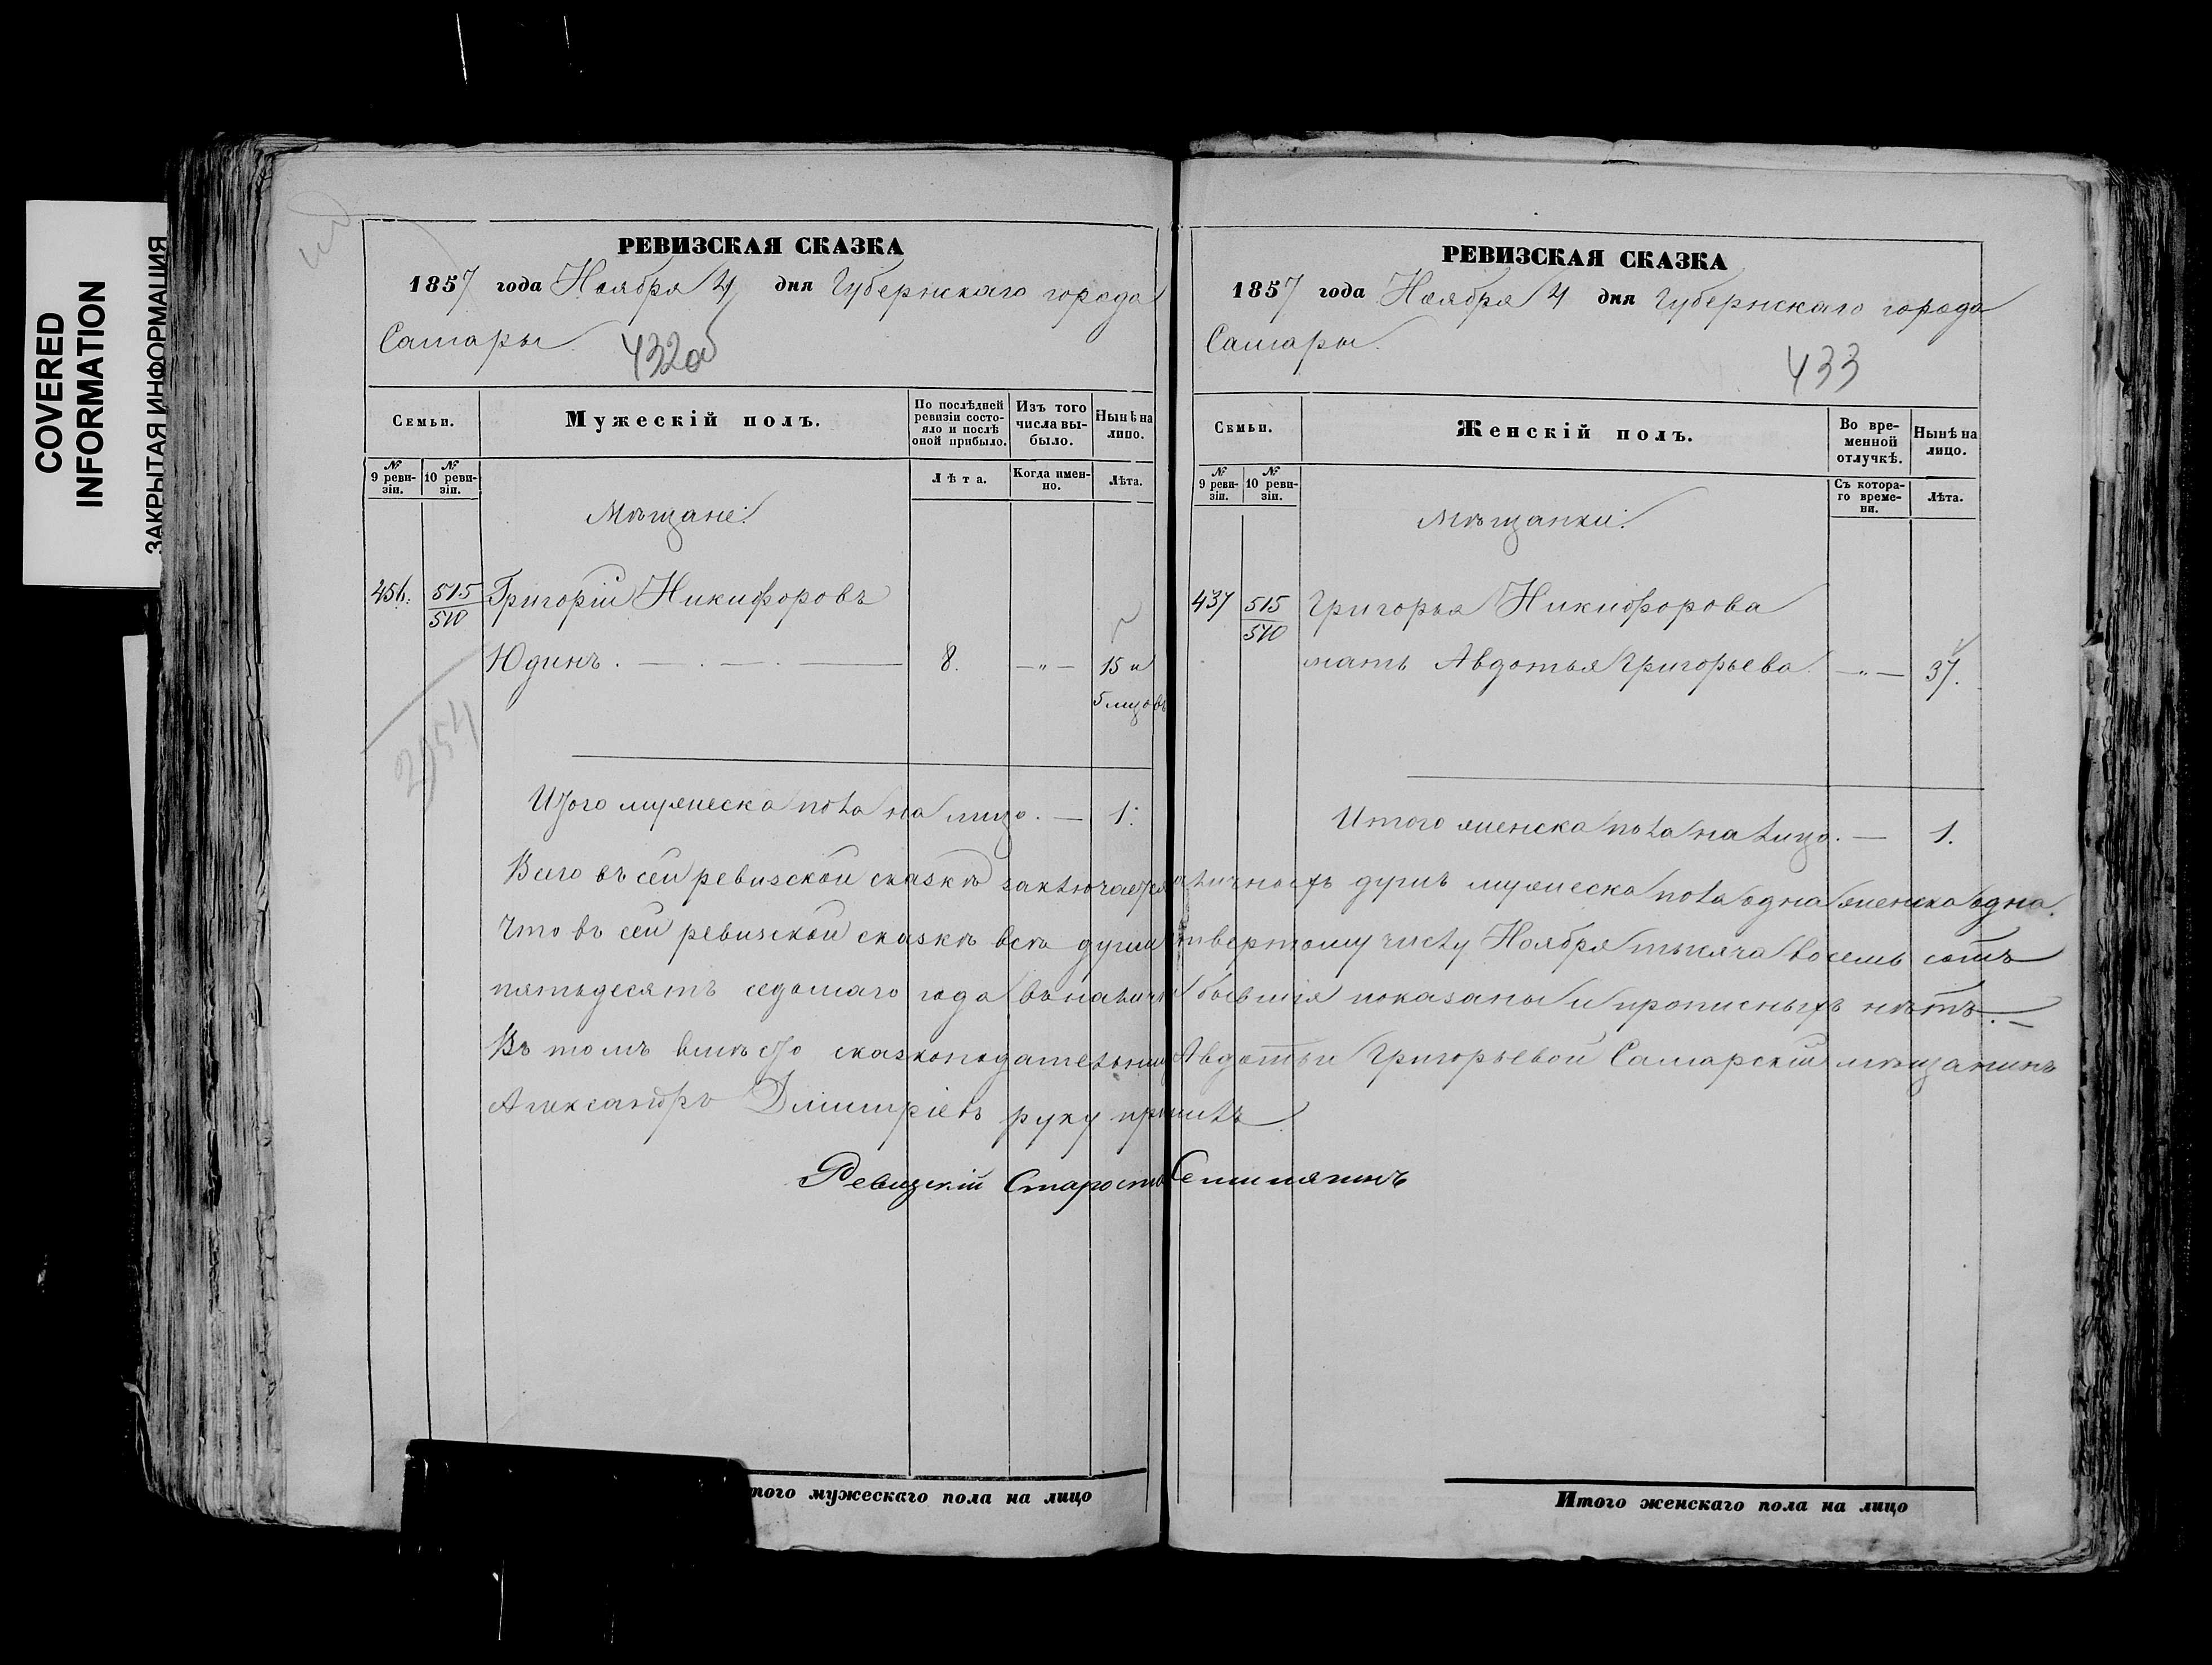 COVERED
INFORMATION
ЗАКРЫТАЯ ИНФОРМАЦИЯ
РЕВИЗСКАЯ СКАЗКА
1857 года Ноября 4 дня Губернскаго города
Самары
432об
Семьи.
Мужескій полъ.
По послѣдней ревизіи состо-
яло и послѣ
оной прибыло.
Изъ того
числа вы-
было.
Нынѣ на
лицо.
№
9 реви-
зіи.
№
10 реви-
зіи.
Лѣта.
Когда имен-
но.
Лѣта.
Мѣщане:
456. 515 Григорій Никифоровъ
510
Юдинъ. 8. —"— 15 и
5 мцовъ
2054
Итого мужеска пола на лицо. — 1.
РЕВИЗСКАЯ СКАЗКА
1857 года Ноября 4 дня Губернскаго города
Самары.
433
Семьи.
Женскій полъ.
Во вре-
менной
отлучкѣ.
Нынѣ на
лицо.
№
9 реви-
зіи.
№
10 реви-
зіи.
Съ котора-
го време-
ни.
Лѣта.
Мѣщанки:
437 515 Григорья Никифорова
510
мать Авдотья Григорьева —"— 37.
Итого женска пола на лицо. — 1.
Всего въ сей ревизской сказкѣ заключается личность душъ мужеска пола одна женска одна.
Что въ сей ревизской сказкѣ всѣ души четвертому числу Ноября тысяча восемь сотъ
пятьдесятъ седьмаго года въ наличіи бывшія показаны и прописныхъ нѣтъ. —
Въ томъ вмѣсто сказкоподательницы Авдотьи Григорьевой Самарскій мѣщанинъ
Александръ Дмитріевъ руку приложилъ
Ревизскій Староста
того мужескаго пола на лицо
Итого женскаго пола на лицо